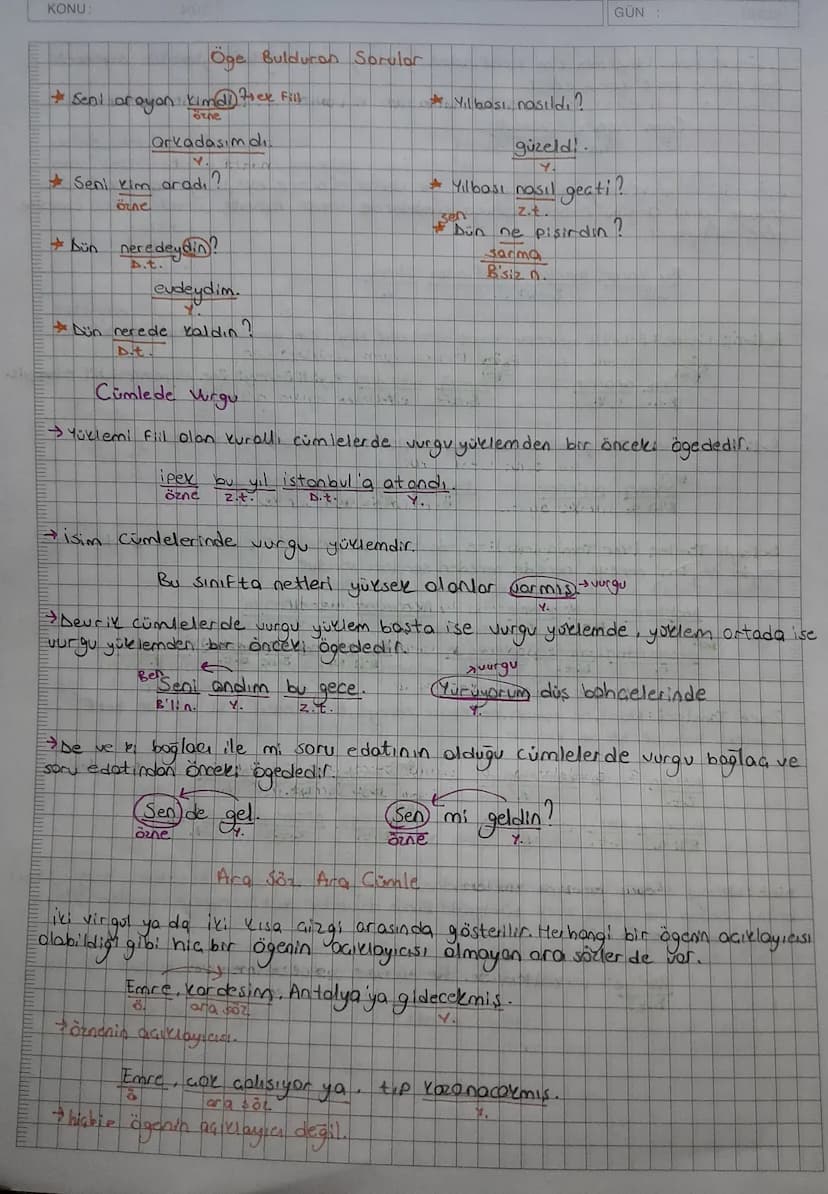 KONU:
GÜN :
Öge Bulduran Sorular
★ Seni arayan kimdi? →ek fiil
özne
arkadaşımdı.
Y.
★ Seni kim aradı?
özne
★ Dün neredeydin?
D.t.
evdeydim.
Y.
★ Dün nerede kaldın?
D.t.
★ Yılbaşı nasıldı?
güzeldi.
Y.
★ Yılbaşı nasıl geçti?
z.t.
sen
★ Dün ne pişirdin?
sarma
B'siz n.
Cümlede Vurgu
→ Yüklemi fiil olan kurallı cümlelerde vurgu yüklemden bir önceki ögededir.
ipek bu yıl istanbul'a atandı.
özne z.t. D.t. Y.
→ isim cümlelerinde vurgu yüklemdir.
Bu sınıfta netleri yüksek olanlar varmış →vurgu
Y.
→ Devrik cümlelerde vurgu yüklem başta ise vurgu yüklemde, yüklem ortada ise
vurgu yüklemden bir önceki ögededir.
Ben Seni andım bu gece.
B'li n. Y. z.t.
→vurgu
Yürüyorum düş bahçelerinde
Y.
→ De ve ki bağlacı ile mi soru edatının olduğu cümlelerde vurgu bağlaç ve
soru edatından önceki ögededir.
Sen de gel.
özne Y.
Sen mi geldin?
özne Y.
Ara Söz Ara Cümle
İki virgül ya da iki kısa çizgi arasında gösterilir. Herhangi bir ögenin açıklayıcısı
olabildiği gibi hiç bir ögenin açıklayıcısı olmayan ara sözler de var.
Emre, kardeşim, Antalya'ya gidecekmiş.
ö. ara söz Y.
→ öznenin açıklayıcısı.
Emre, çok çalışıyor ya, tıp kazanacakmış.
ö ara söz Y.
→ hiçbir ögenin açıklayıcı değil.